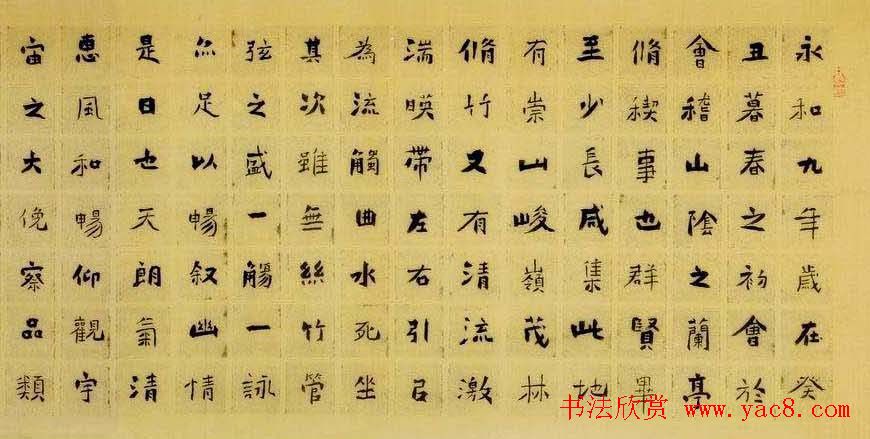 永和九年歲在癸
丑暮春之初會於
會稽山陰之蘭亭
脩稧事也群賢畢
至少長咸集此地
有崇山峻嶺茂林
脩竹又有清流激
湍暎帶左右引㠯
為流觴曲水列坐
其次雖無絲竹管
弦之盛一觴一詠
亦足以暢叙幽情
是日也天朗氣清
惠風和暢仰觀宇
宙之大俛察品類
书法欣赏 www.yac8.com